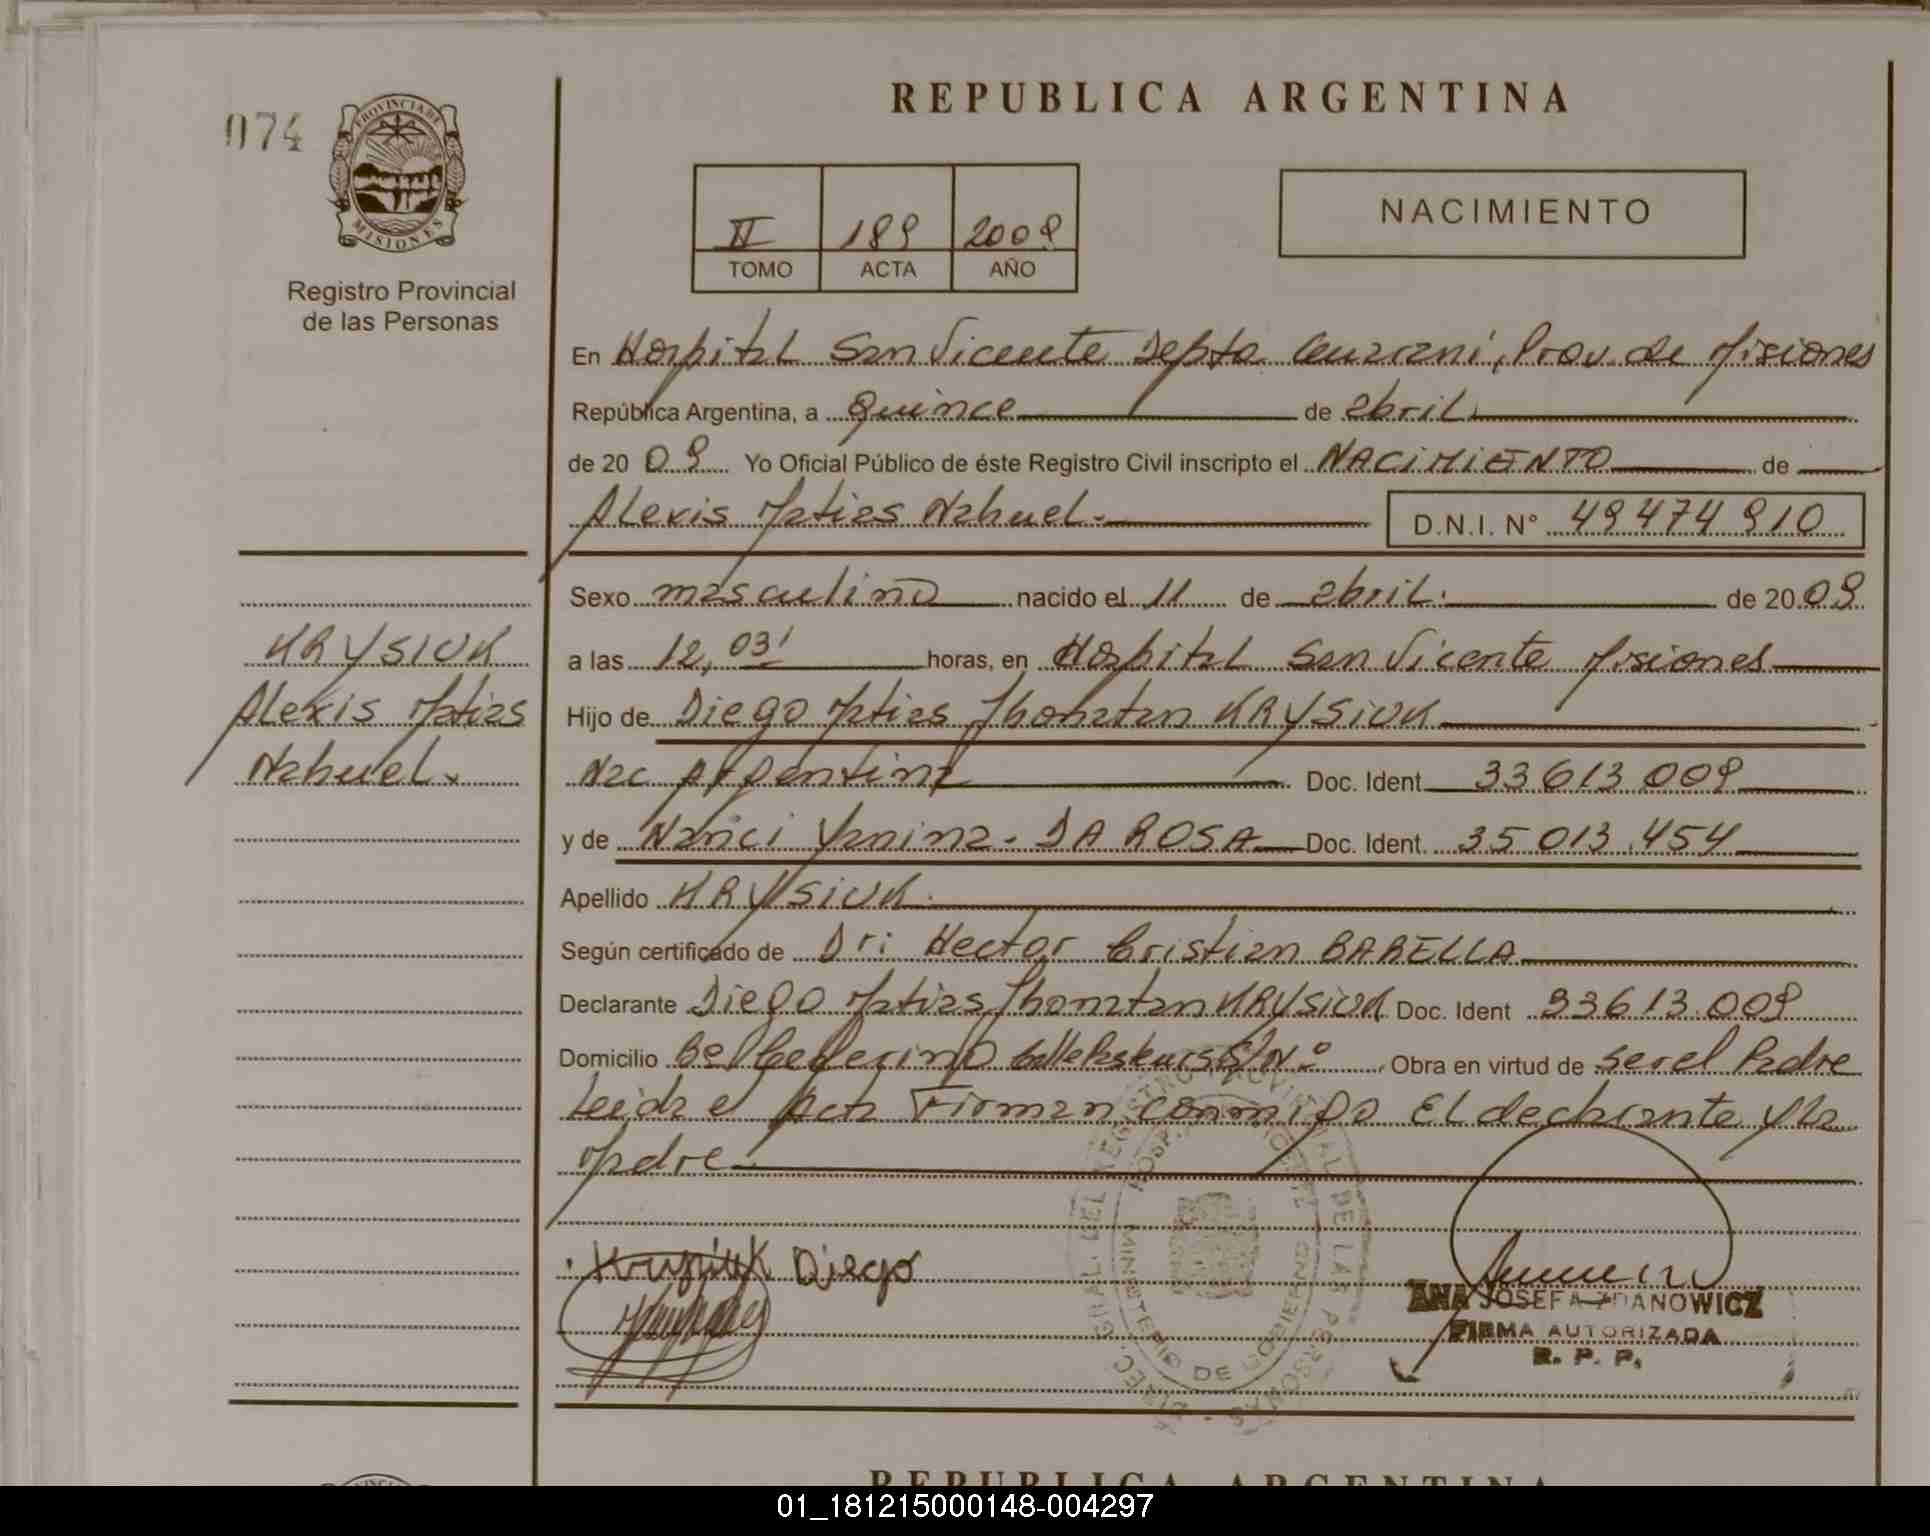 REPUBLICA ARGENTINA
074
PROVINCIA DE
MISIONES
Registro Provincial
de las Personas
II 189 2009
TOMO ACTA AÑO
NACIMIENTO
En Hospital San Vicente Depto Guarani, Prov. de Misiones
República Argentina, a Quince de abril
de 20 09 Yo Oficial Público de éste Registro Civil inscripto el NACIMIENTO de
Alexis Matias Nahuel.
D.N.I. N° 49474910
Sexo masculino nacido el 11 de abril. de 20 09
KRYSIUK
a las 12,03' horas, en Hospital San Vicente Misiones
Alexis Matias
Hijo de Diego Matias Jhonatan KRYSIUK
Nahuel.
Nac Argentina Doc. Ident. 33613.009
y de Nanci Yanina. DA ROSA Doc. Ident. 35013.454
Apellido KRYSIUK.
Según certificado de Dr: Hector Cristian BARELLA
Declarante Diego Matias Jhonatan KRYSIUK Doc. Ident 33613.009
Domicilio S/N° Obra en virtud de ser el Padre
Leida el Acta Firman conmigo El declarante y la
Madre
Krysiuk Diego
ANA JOSEFA ZDANOWICZ
FIRMA AUTORIZADA
R. P. P.
MINISTERIO DE GOBIERNO
REPUBLICA ARGENTINA
01_181215000148-004297